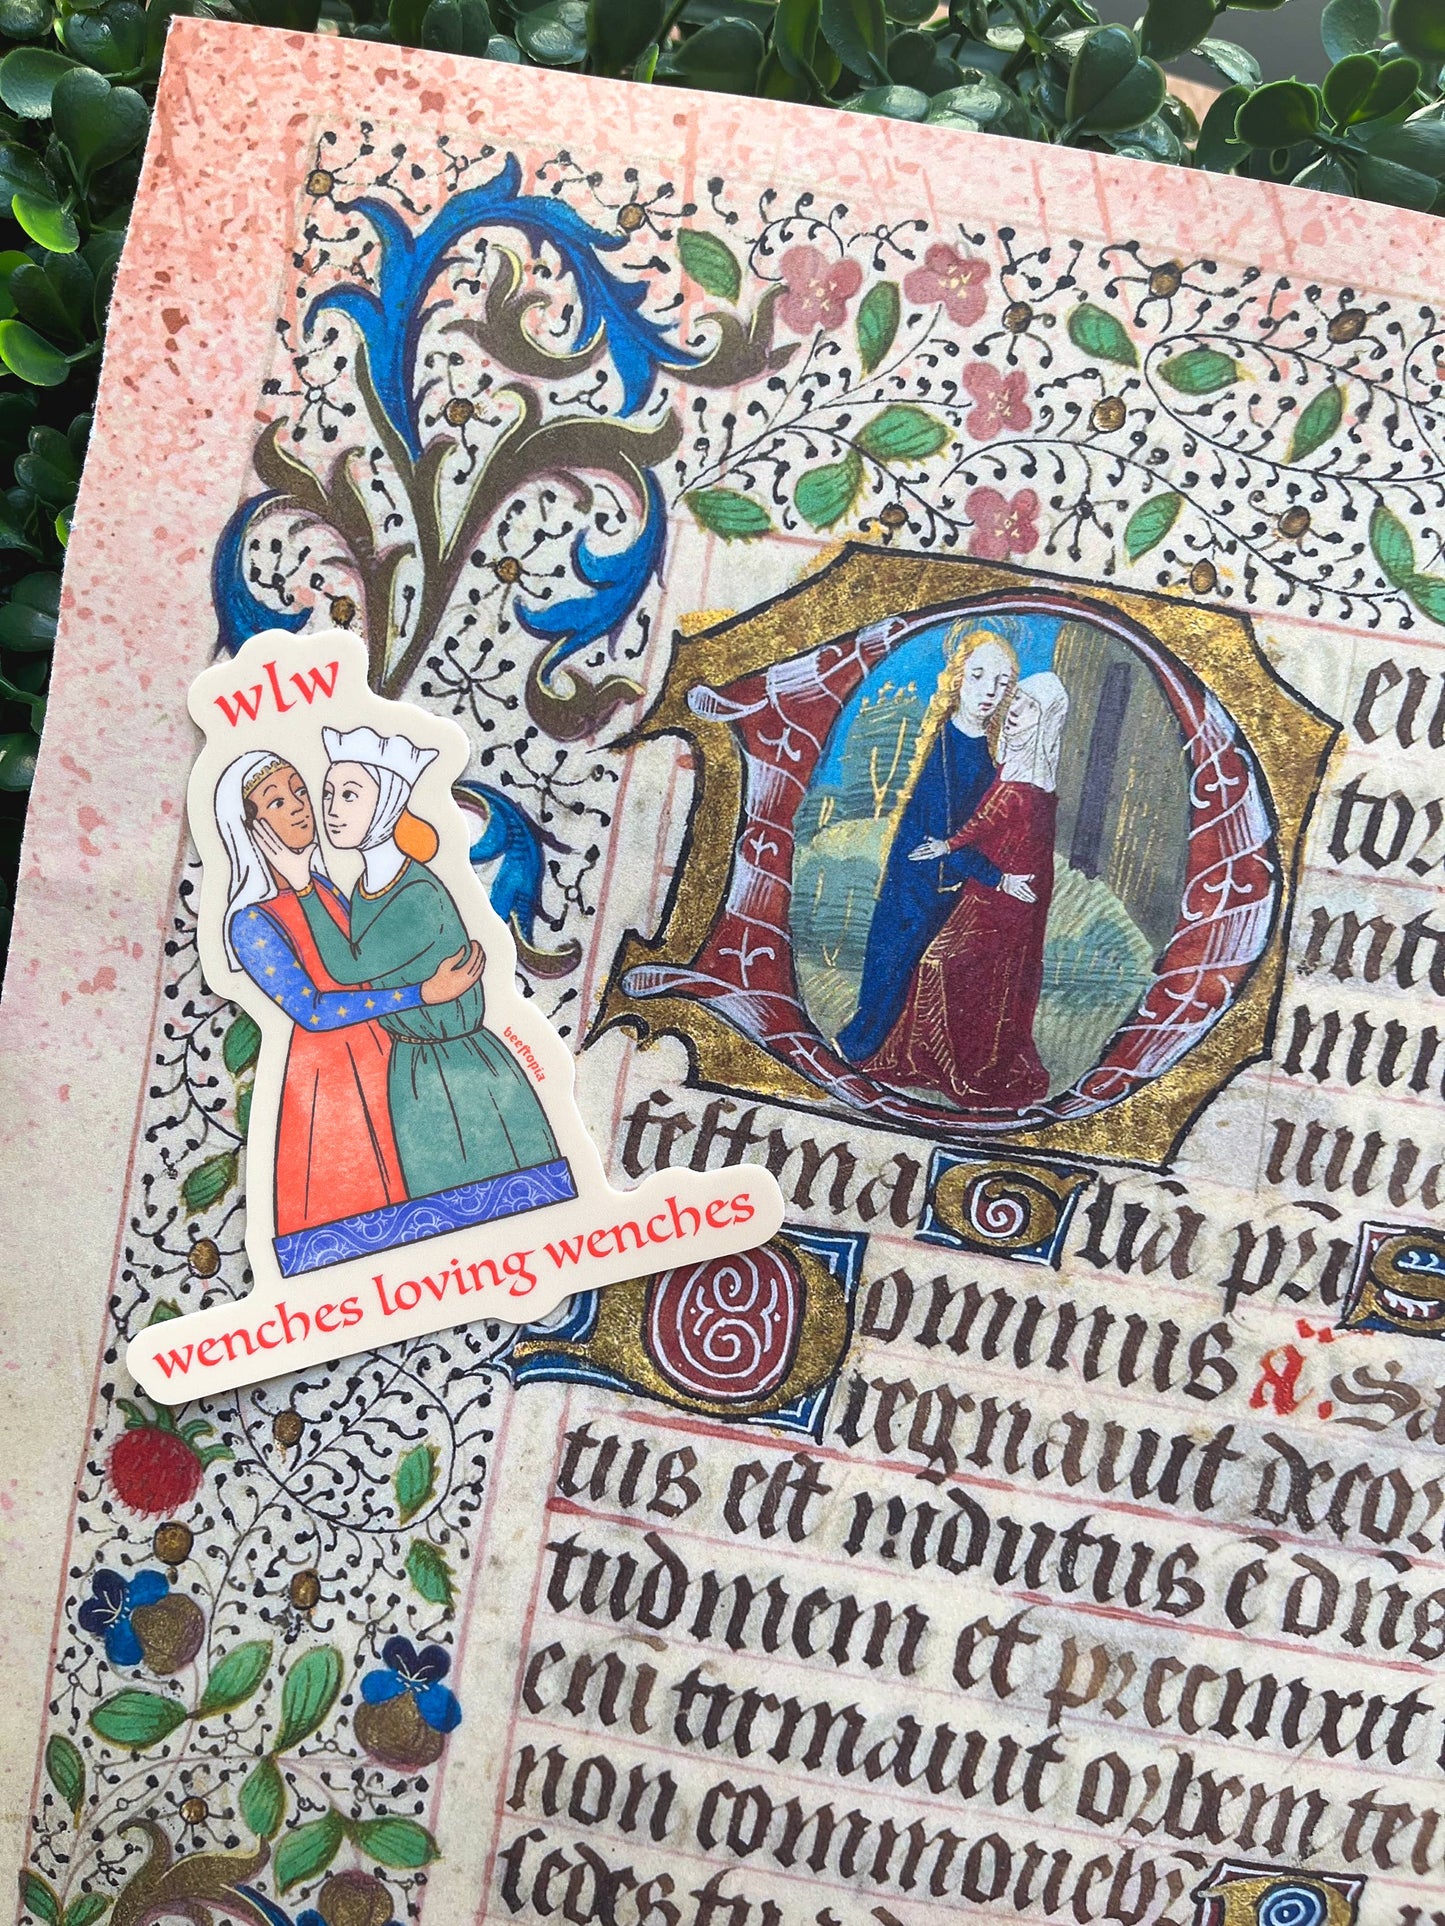 wlw
beeftopia
wenches loving wenches
festina Glia pri S
Dominus añ. Sa
regnauit deco
tus est indutus ē dñs
tudinem et precinxit
eni firmauit orbem ter
non commouebi
sedes tu